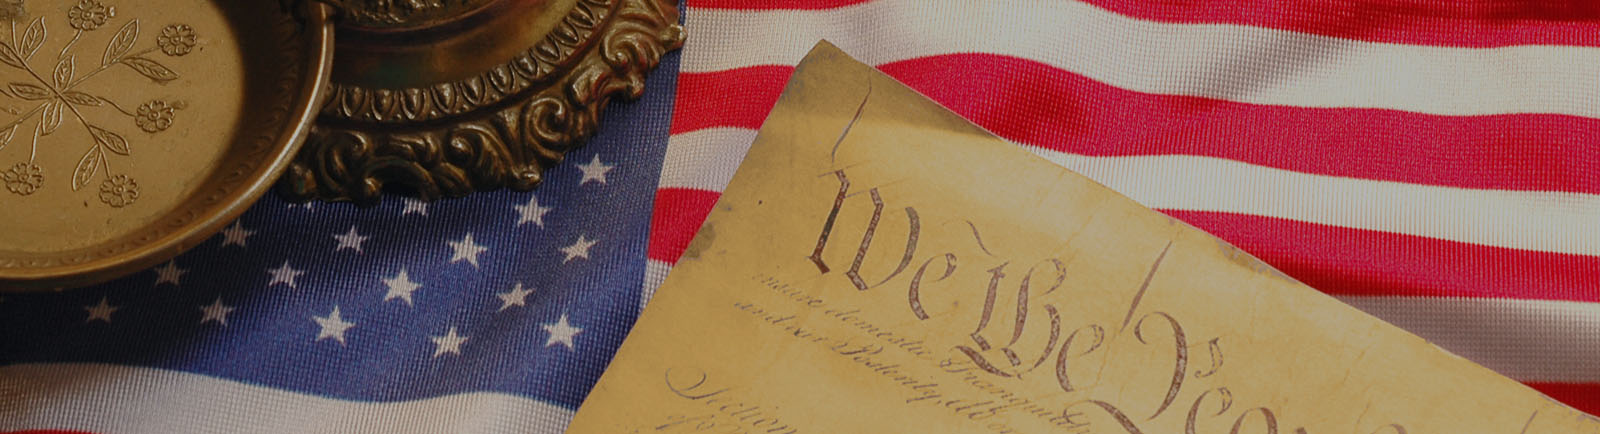 We the Peo
insure domestic Tranquility
and our Posterity, do
Section
of